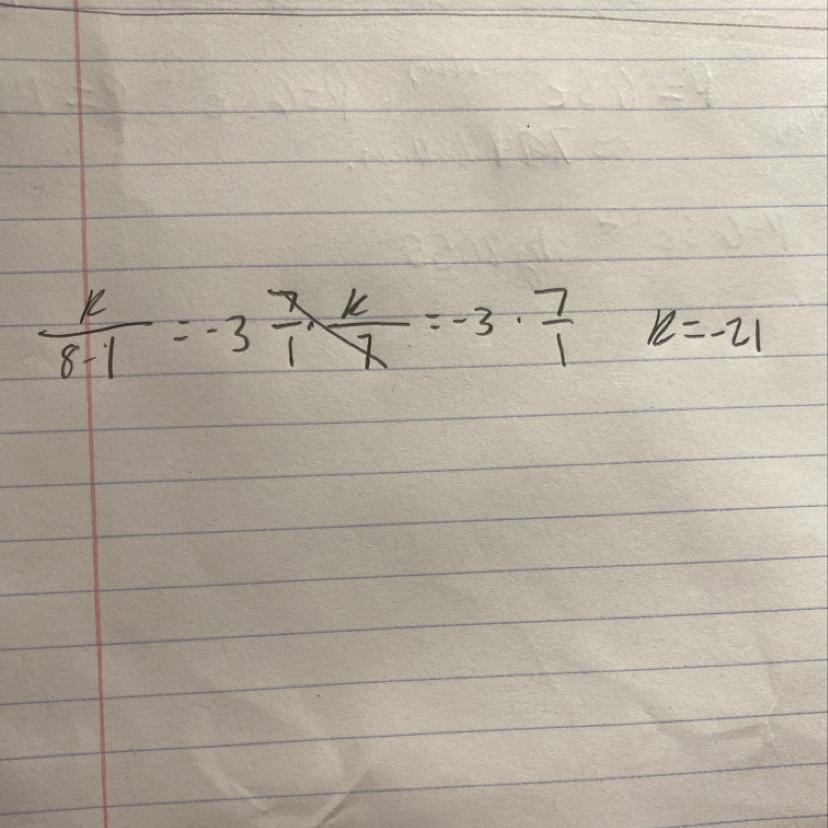 k/(8-1) = -3 7/1 · k/7 = -3 · 7/1 k = -21